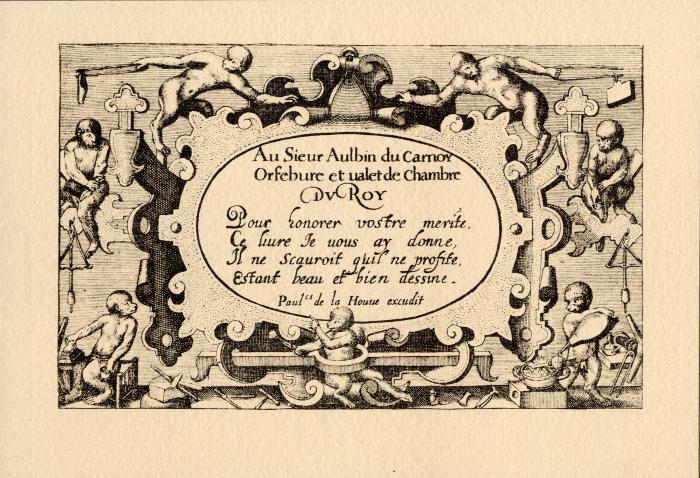 Au Sieur Aulbin du Carnoy
Orfebure et ualet de Chambre
DV ROY
Pour honorer vostre merite,
Ce liure Ie uous ay donne,
Il ne Scauroit quil ne profite,
Estant beau et bien dessine.
Paul.us de la Houue excudit